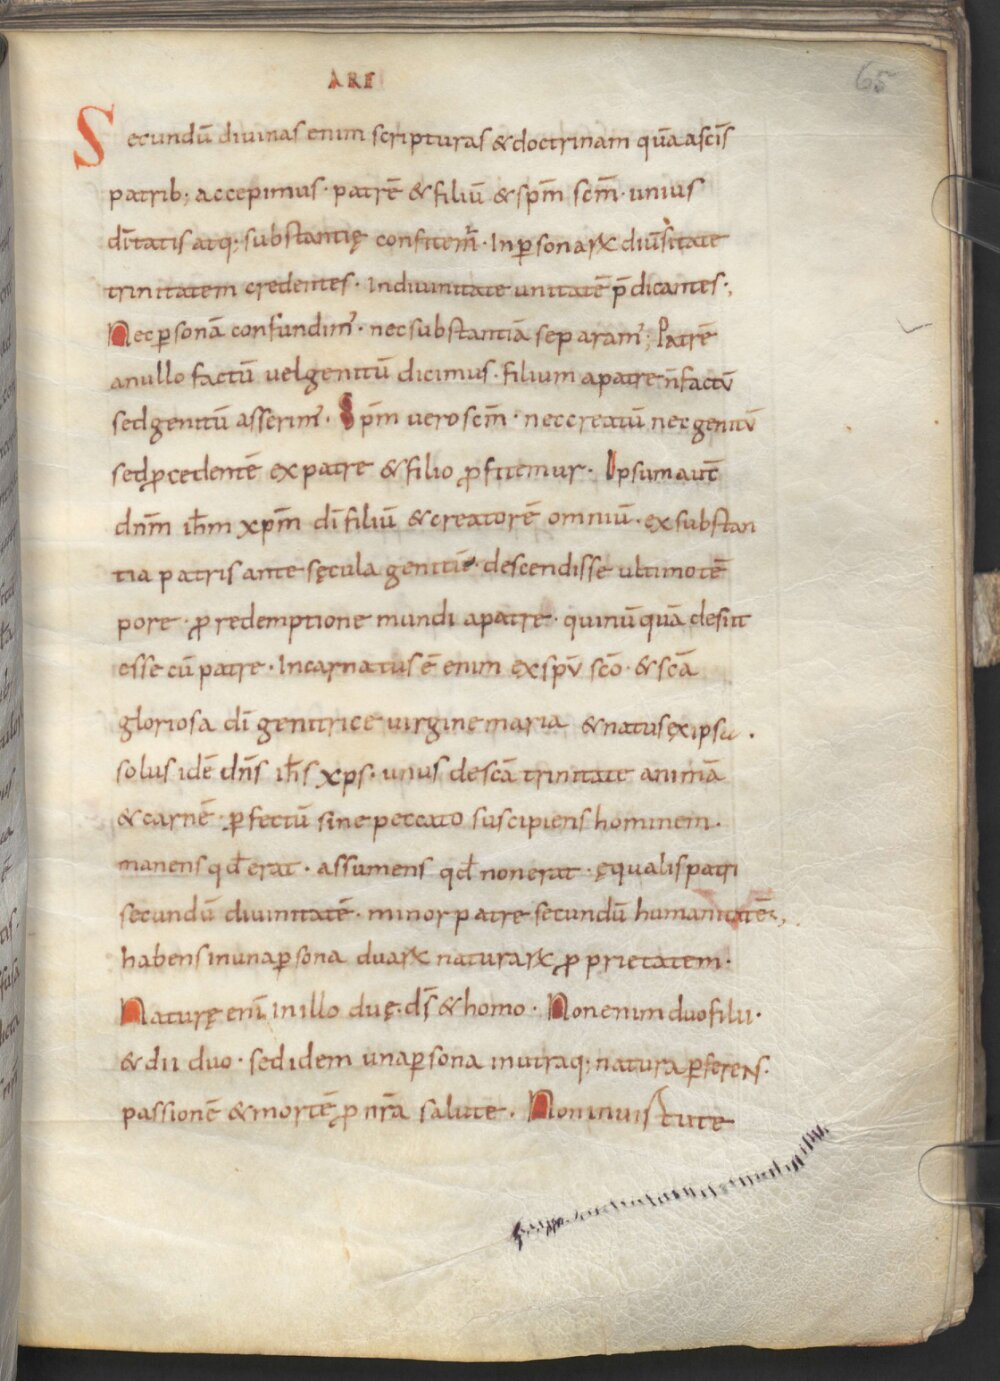 ARE
65
Secundū diuinas enim scripturas & doctrinam quā a sc̄is
patrib; accepimus · patrē & filiū & sp̄m sc̄m · unius
dītatis atq; substantię confitem̄ · In p̱sonarꝝ diūsitate
trinitatem credentes · In diuinitate unitatē p̄dicantes ·,
Nec p̱sonā confundim̄ · nec substantiā separam̄; Patrē
a nullo factū uel genitū dicimus · filium a patre n̄ factū
sed genitū asserim̄ · Sp̄m uero sc̄m · nec creatū nec genitū
sed ꝓcedentē ex patre & filio ꝓfitemur · Ipsum aut̄
dn̄m ih̄m xp̄m dī filiū & creatorē omniū · ex substan
tia patris ante sęcula genitū · descendisse ultimo tē
pore · ꝓ redemptione mundi a patre · qui nūquā desiit
esse cū patre · Incarnatus ē enim ex spū scō · & scā
gloriosa dī genitrice uirgine maria & natus ex ipsa ·
solus idē dn̄s ih̄s xp̄s · unus de scā trinitate animā
& carnē · ꝑfectū sine peccato suscipiens hominem ·
manens qd̄ erat · assumens qd̄ non erat · ęqualis patri
secundū diuinitatē · minor patre secundū humanitatē ·,
habens in una ꝑsona duarꝝ naturarꝝ ꝓprietatem ·
Naturę enī in illo duę · ds̄ & homo · Non enim duo filii ·
& dii duo · sed idem una ꝑsona in utraq; natura ꝑferens ·
passionē & mortē ꝓ nrā salute · Non in uirtute